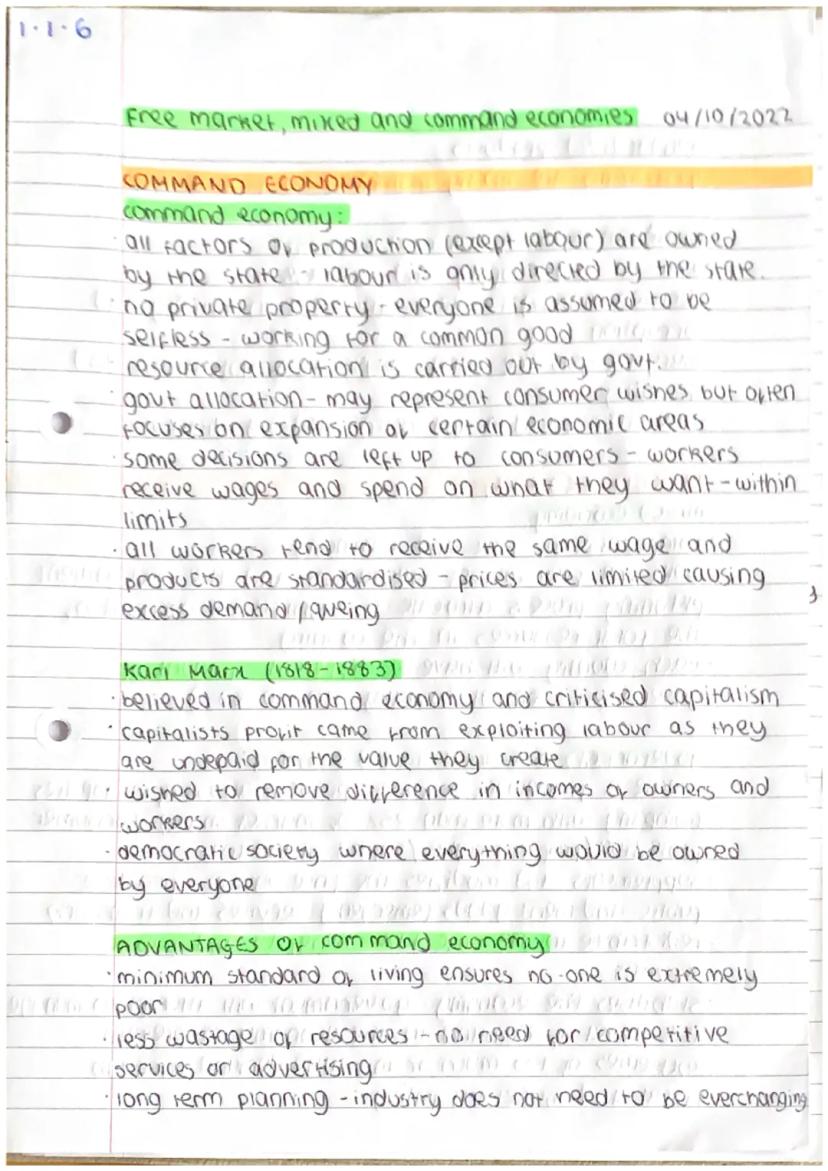 1.1.6
Free market, mixed and command economies 04/10/2022
COMMAND ECONOMY
command economy:
· all factors of production (except labour) are owned
by the state - labour is only directed by the state.
· no private property - everyone is assumed to be
selfless - working for a common good
· resource allocation is carried out by govt.
· govt allocation - may represent consumer wishes but often
focuses on expansion of certain economic areas
· some decisions are left up to consumers - workers
receive wages and spend on what they want - within
limits
· all workers tend to receive the same wage and
products are standardised - prices are limited causing
excess demand / queing
Karl Marx (1818-1883)
· believed in command economy and criticised capitalism
· capitalists profit came from exploiting labour as they
are undepaid for the value they create
· wished to remove difference in incomes of owners and
workers
· democratic society where everything would be owned
by everyone
ADVANTAGES OF command economy
· minimum standard of living ensures no-one is extremely
poor
· less wastage of resources - no need for competitive
services or advertising
· long term planning - industry does not need to be everchanging